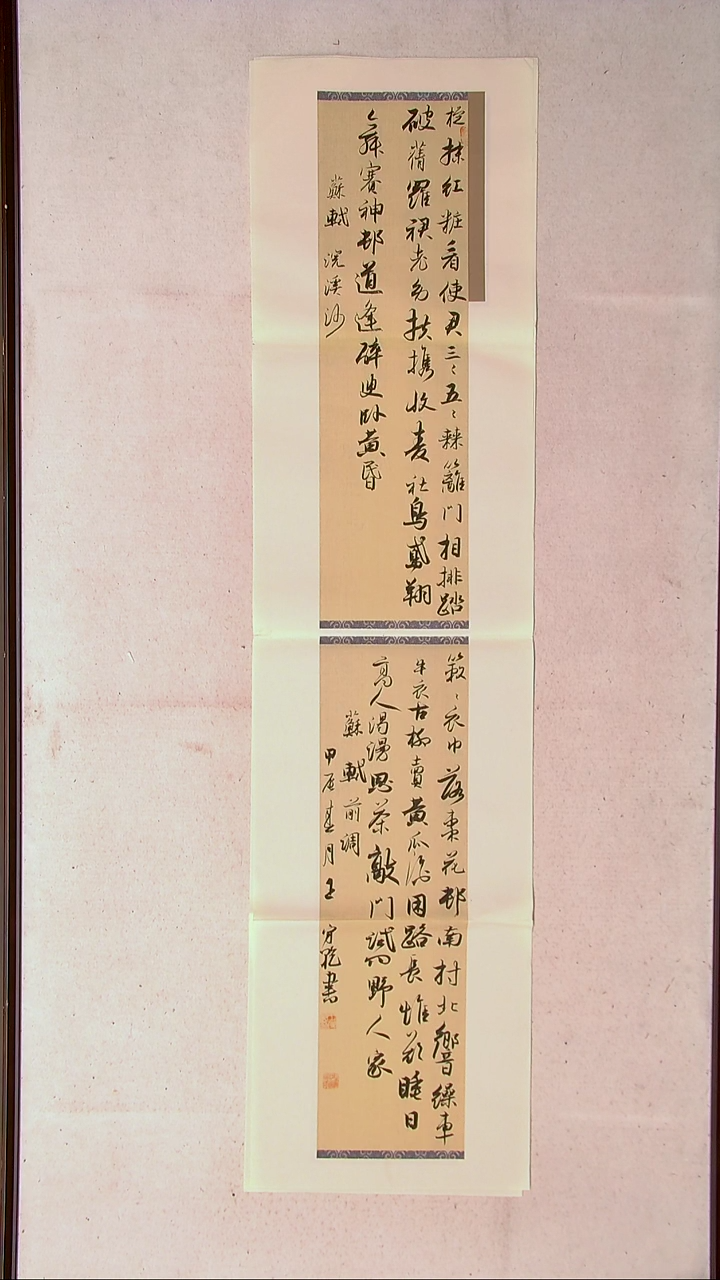 旋抹红粧看使君三々五々棘籬门相排踏
破蒨羅裙老幼扶携收麦社鸟鸢翔
々舞賽神邨道逢醉叟卧黄昏
蘇軾 浣溪沙
簌々衣巾落棗花邨南村北響繰車
牛衣古柳賣黄瓜酒困路長惟欲睡日
高人渴漫思茶敲门試问野人家
蘇軾 前調
甲辰春月王守書